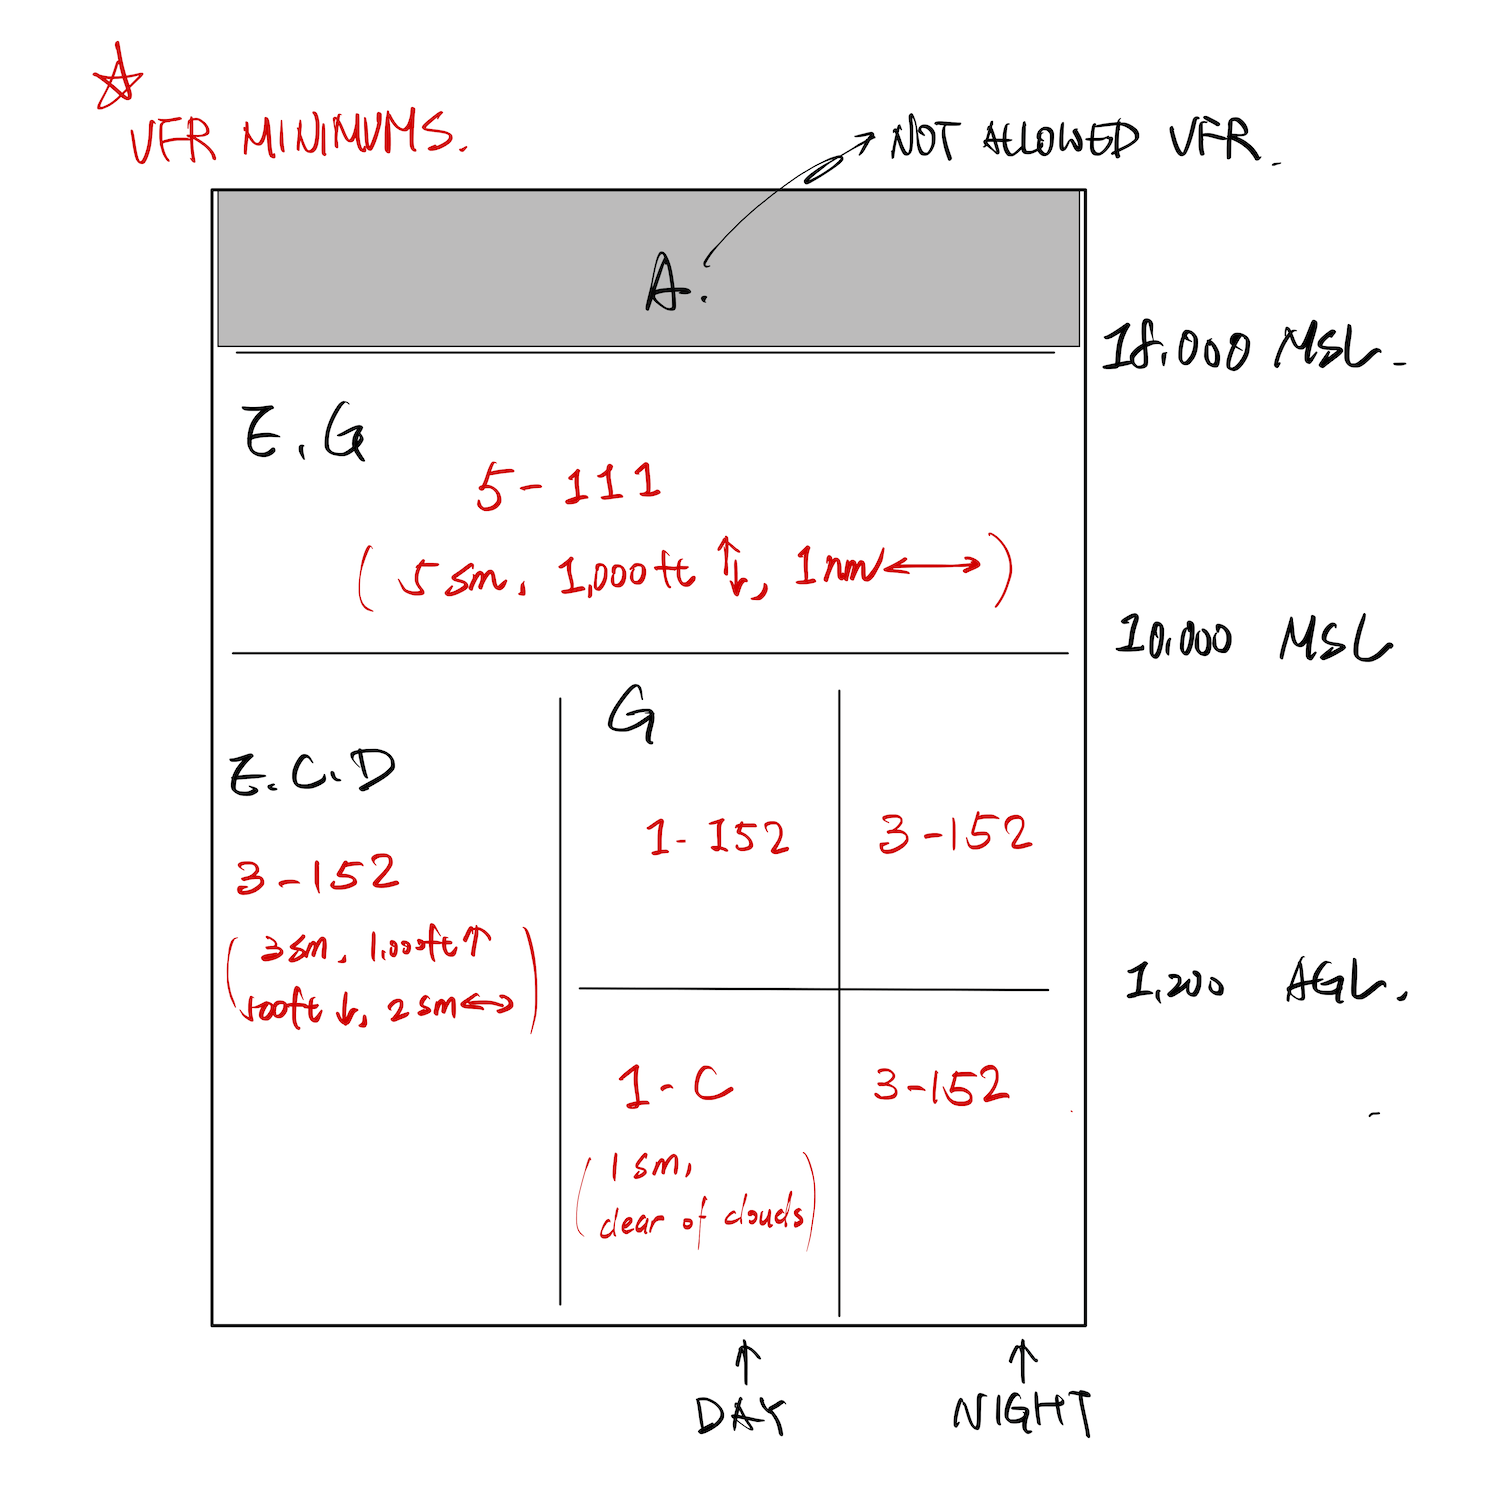 VFR MINIMUMS.
NOT ALLOWED VFR.
A.
18,000 MSL.
E, G
5-111
(5 sm, 1,000ft ↑↓, 1nm ↔)
10,000 MSL
G
E.C.D
1-152
3-152
3-152
(3 sm, 1,000ft ↑
500ft ↓, 2 sm ↔)
1,200 AGL.
1-C
3-152
(1 sm,
clear of clouds)
↑
DAY
↑
NIGHT